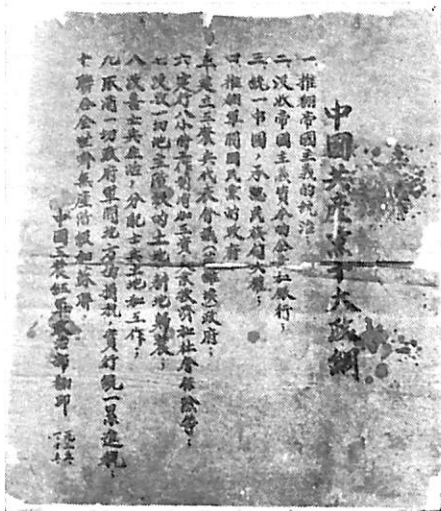 中國共產黨十大政綱
一 推翻帝國主義的統治；
二 沒收帝國主義資本的企業和銀行；
三 統一中國，承認民族自決權；
四 推翻軍閥國民黨的政府
五 建立工農兵代表會議（ ）政府；
六 實行八小時工作制增加工資失業救濟社會保險等；
七 沒收一切地主階級的土地，耕地歸農；
八 改善士兵生活，分配士兵土地和工作；
九 取消一切政府軍閥地方的捐稅，實行統一累進稅；
十 聯合全世界無產階級和蘇聯
中國工農紅軍政治部翻印